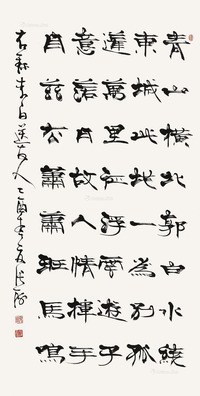 青山橫北郭白水繞
東城此地一為別孤
蓬萬里征浮雲遊子
意落日故人情揮手
自茲去蕭蕭班馬鳴
右錄李白送友人乙酉